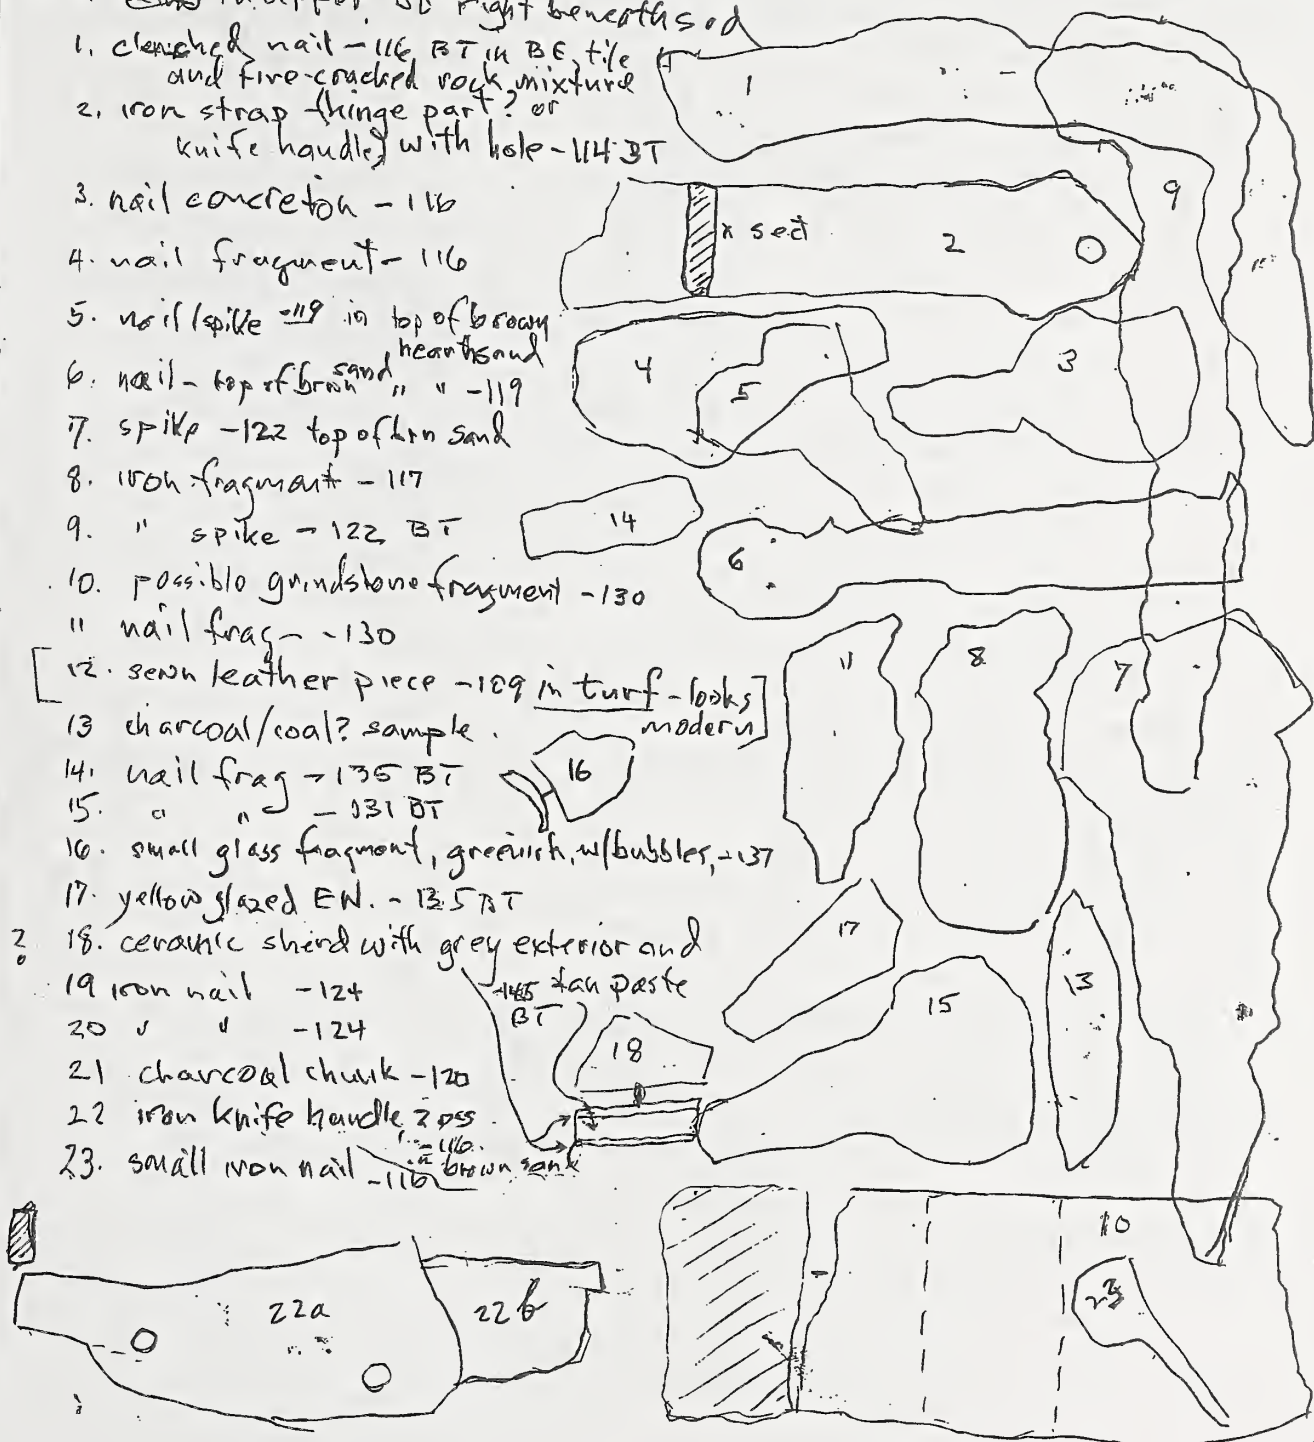 in upper BE right beneath sod
1. clenched nail - 116 BT in BE, tile
and fire-cracked rock mixture
2. iron strap (hinge part? or
knife handle) with hole - 114 BT
3. nail concreton - 116
4. nail fragment - 116
5. nail/spike -119 in top of brown
hearthsand
6. nail - top of brown sand " " -119
7. spike -122 top of brn sand
8. iron fragment - 117
9. " spike - 122 BT
10. possible grindstone fragment -130
11 nail frag - -130
[12. sewn leather piece -109 in turf - looks
modern]
13 charcoal/coal? sample.
14. nail frag - 135 BT
15. " " - 131 BT
16. small glass fragment, greenish, w/bubbles, -137
17. yellow glazed EW. - 135 BT
? 18. ceramic sherd with grey exterior and
-145 tan paste
BT
19 iron nail -124
20 " " -124
21 charcoal chunk -120
22 iron knife handle, 2 pss
-116
23. small iron nail -116 brown sand
1
9
x sect
2
4
5
3
14
6
11
8
7
16
17
15
13
18
10
23
22a
22b